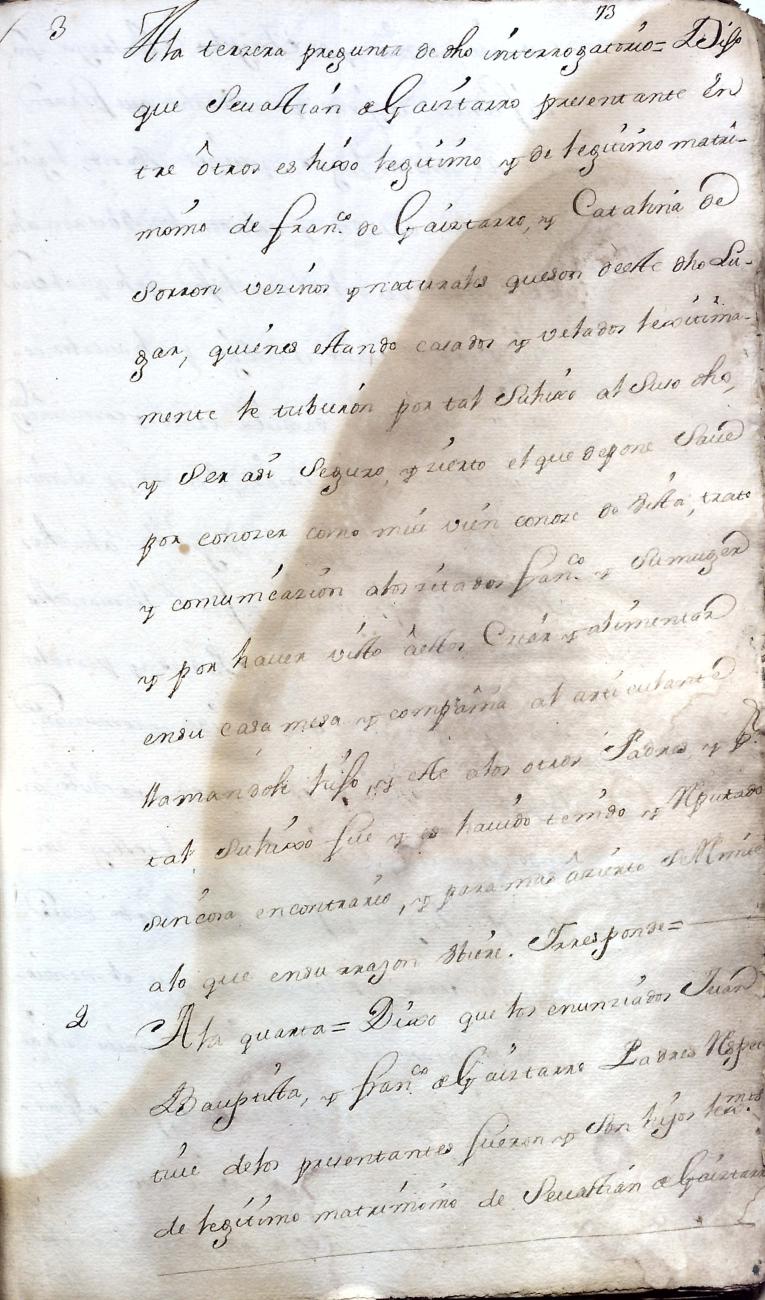 73
3 A la terzera pregunta de dho interrogatorio= Dijo
que Sevastian de Gaiztarro presentante En
tre ôtros es hixo legitimo y de legitimo matri-
monio de Fran.co de Gaiztarro, y Cathalina de
Sorron vezinos y naturales que son de este dho Lu-
gar, quiénes estando casados y velados lexitima-
mente le tubieron por tal Su hixo al Suso dho,
y Ser asi Seguro, y zierto el que depone Save
por conozer como mui vien conoze de vista, trato
y comunicazion a los zitados Fran.co y Su muger
y por haver visto âestos Criar y alimentar
en su casa mesa y compañia al articulante
llamandole hijo, y este a los otros Padres, y p.r
tal Su hixo fue y es havido tenido y Reputado
sin cosa en contrario, y para mas âzierto se Remite
a lo que en su rrazon Ubiere. Y rresponde=
2 A la quarta= Dixo que los enunziados Juan
Bauptista, y Fran.co de Gaiztarro Padres Respec
tive de los presentantes fueron y Son hijos lex.mos
de legitimo matrimonio de Sevastian de Gaiztarro